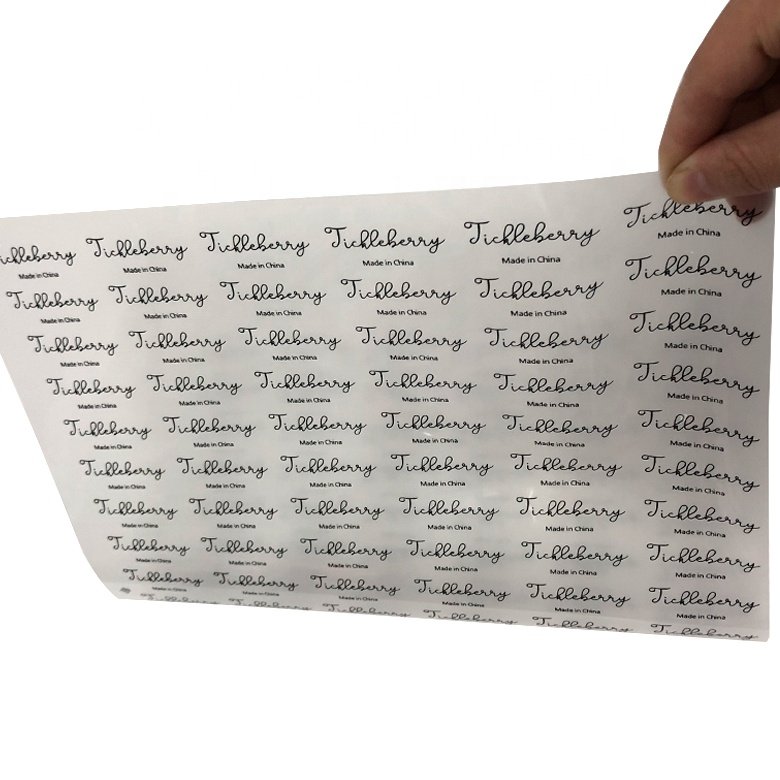 ickleberry Tickleberry Tickleberry Tickleberry Tickleberry Tickleberry
Made in China Made in China Made in China Made in China Made in China Made in China
Tickleberry Tickleberry Tickleberry Tickleberry Tickleberry Tickleberry
Made in China Made in China Made in China Made in China Made in China Made in China
Tickleberry Tickleberry Tickleberry Tickleberry Tickleberry Tickleberry
Made in China Made in China Made in China Made in China Made in China Made in China
Tickleberry Tickleberry Tickleberry Tickleberry Tickleberry Tickleberry
Made in China Made in China Made in China Made in China Made in China Made in China
Tickleberry Tickleberry Tickleberry Tickleberry Tickleberry Tickleberry
Made in China Made in China Made in China Made in China Made in China Made in China
Tickleberry Tickleberry Tickleberry Tickleberry Tickleberry Tickleberry
Made in China Made in China Made in China Made in China Made in China Made in China
Tickleberry Tickleberry Tickleberry Tickleberry Tickleberry Tickleberry
Made in China Made in China Made in China Made in China Made in China Made in China
Tickleberry Tickleberry Tickleberry Tickleberry Tickleberry Tickleberry
Made in China Made in China Made in China Made in China Made in China Made in China
Tickleberry Tickleberry Tickleberry Tickleberry Tickleberry Tickleberry
Made in China Made in China Made in China Made in China Made in China Made in China
Tickleberry Tickleberry Tickleberry Tickleberry Tickleberry Tickleberry